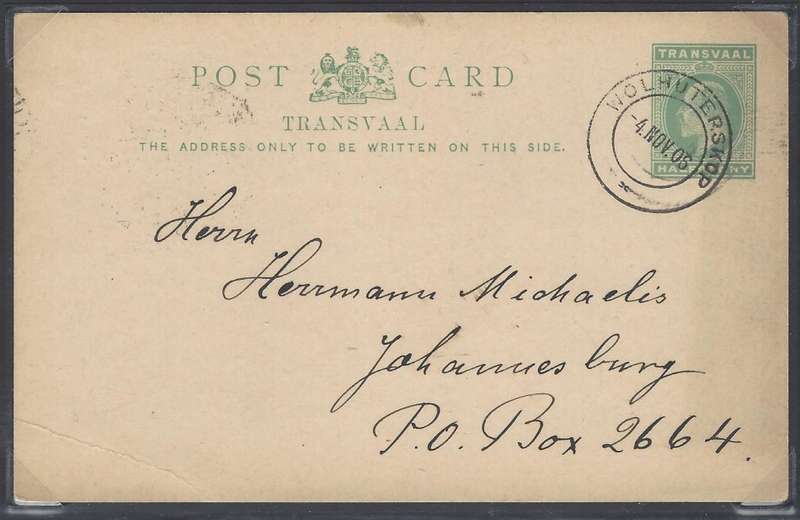 POST CARD
TRANSVAAL
THE ADDRESS ONLY TO BE WRITTEN ON THIS SIDE.
TRANSVAAL
HALFPENNY
WOLHUTERSKOP
-4.NOV.05
Herrn
Herrmann Michaelis
Johannesburg
P.O. Box 2664.